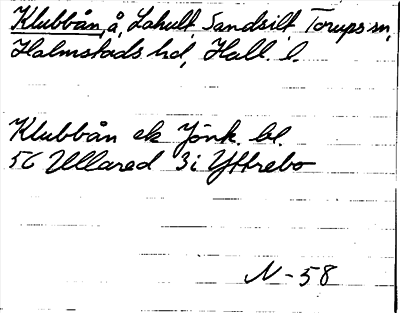 Klubbån, å, Lahult Sandsilt Torups sn,
Halmstads hd, Hall. l.
Klubbån ek Jönk. bl.
5C Ullared 3i Yttrebo
N-58